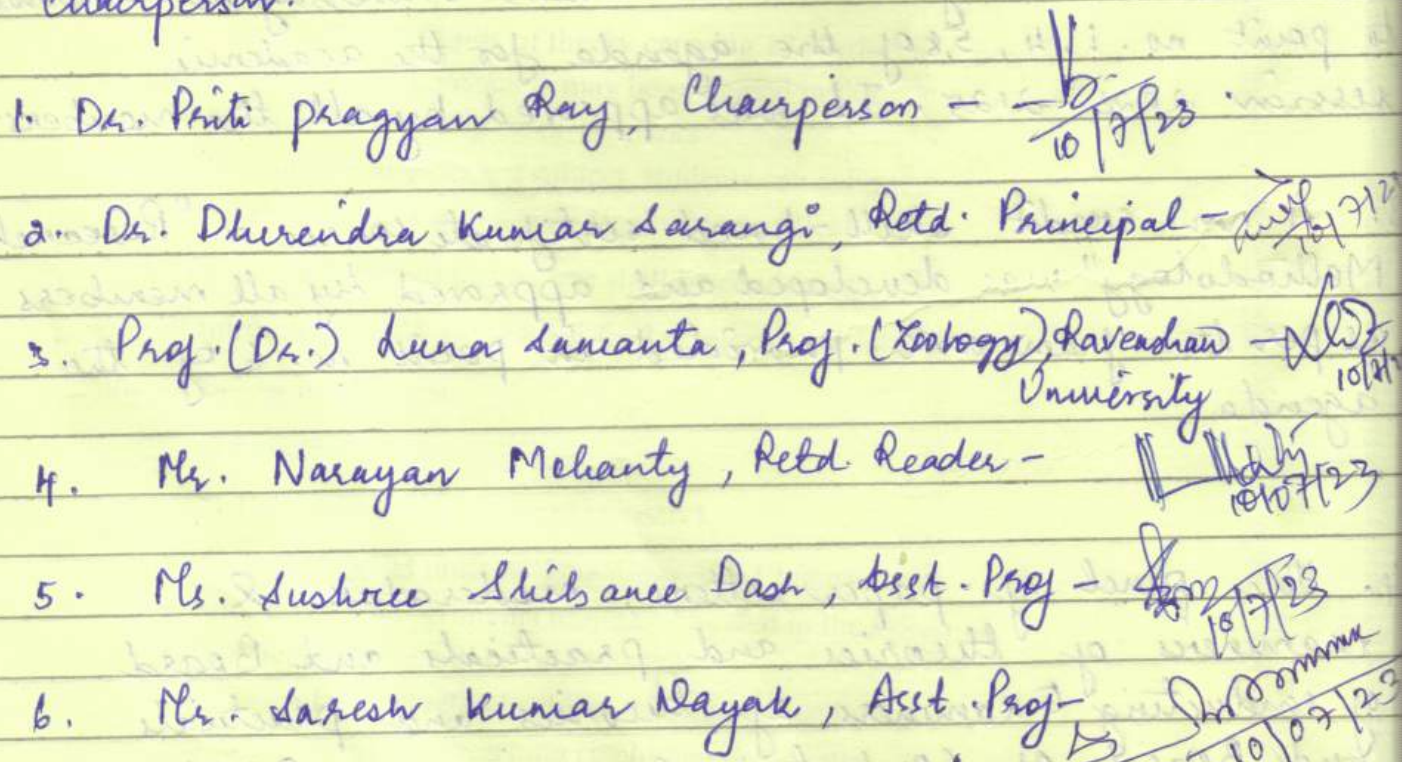 Chairperson.
1. Dr. Priti Pragyan Ray, Chairperson - 10/7/23
2. Dr. Dhirendra Kumar Sarangi, Retd. Principal - 10/7/2
3. Prof. (Dr.) Luna Samanta, Prof. (Zoology), Ravenshaw - 10/7/2
University
4. Mr. Narayan Mohanty, Retd. Reader - 10/07/23
5. Ms. Sushree Shibanee Dash, Asst. Prof - 10/7/23
6. Mr. Saresh Kumar Nayak, Asst. Prof - 10/07/23